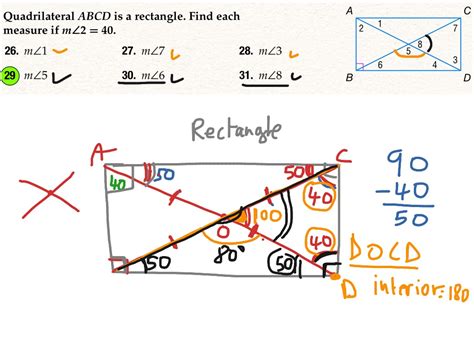 Quadrilateral ABCD is a rectangle. Find each
measure if m∠2 = 40.
26. m∠1 27. m∠7 28. m∠3
29 m∠5 30. m∠6 31. m∠8
A C
2 1 7
8
5
6 4 3
B D
Rectangle
A C
40 50 50
40
100
O
80°
50 50 40
D
90
-40
50
DOCD
interior=180